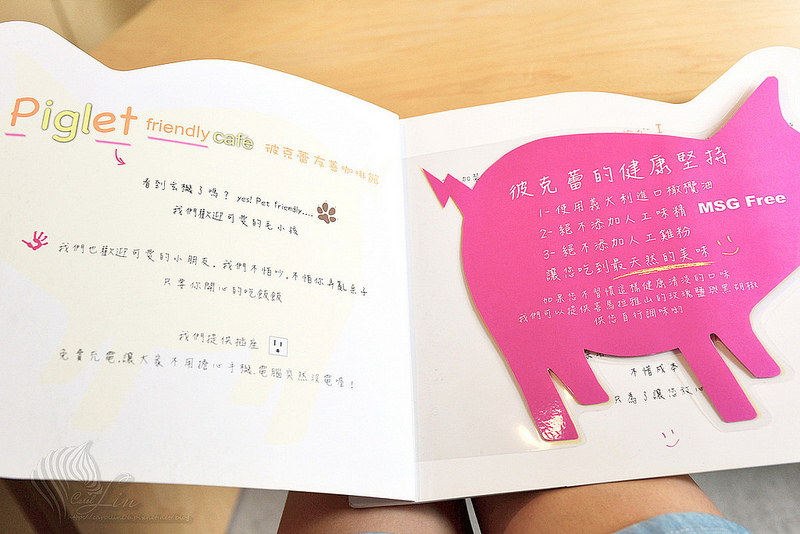 Piglet friendly cafe 彼克蕾友善咖啡館
看到玄機了嗎? yes! Pet friendly....
我們歡迎可愛的毛小孩
我們也歡迎可愛的小朋友, 我們不怕吵, 不怕你弄亂桌子
只要你開心的吃飯飯
我們提供插座
免費充電, 讓大家不用擔心手機.電腦突然沒電喔!
彼克蕾的健康堅持
1- 使用義大利進口橄欖油
2- 絕不添加人工味精 MSG Free
3- 絕不添加人工雞粉
讓您吃到最天然的美味
如果您不習慣這樣健康清淡的口味
我們可以提供喜馬拉雅山的玫瑰鹽與黑胡椒
供您自行調味喲
不惜成本
只為了讓您放心
Carol Lin